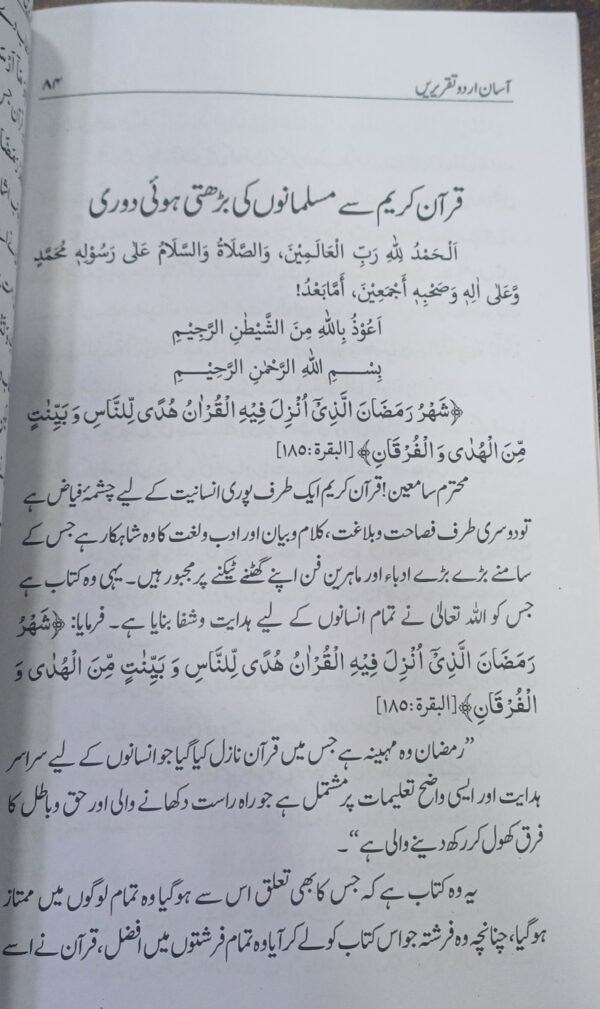 آسان اردو تقریریں ۸۴
قرآن کریم سے مسلمانوں کی بڑھتی ہوئی دوری
اَلْحَمْدُ لِلّٰهِ رَبِّ الْعَالَمِيْنَ، وَالصَّلَاةُ وَالسَّلَامُ عَلٰى رَسُوْلِهٖ مُحَمَّدٍ
وَّعَلٰى اٰلِهٖ وَصَحْبِهٖ أَجْمَعِيْنَ، أَمَّابَعْدُ!
اَعُوْذُ بِاللّٰهِ مِنَ الشَّيْطٰنِ الرَّجِيْمِ
بِسْمِ اللّٰهِ الرَّحْمٰنِ الرَّحِيْمِ
﴿شَهْرُ رَمَضَانَ الَّذِيْٓ اُنْزِلَ فِيْهِ الْقُرْاٰنُ هُدًى لِّلنَّاسِ وَ بَيِّنٰتٍ
مِّنَ الْهُدٰى وَ الْفُرْقَانِ﴾ [البقرة: ۱۸۵]
محترم سامعین! قرآن کریم ایک طرف پوری انسانیت کے لیے چشمۂ فیاض ہے
تو دوسری طرف فصاحت و بلاغت، کلام و بیان اور ادب و لغت کا وہ شاہکار ہے جس کے
سامنے بڑے بڑے ادباء اور ماہرین فن اپنے گھٹنے ٹیکنے پر مجبور ہیں۔ یہی وہ کتاب ہے
جس کو اللہ تعالیٰ نے تمام انسانوں کے لیے ہدایت و شفا بنایا ہے۔ فرمایا: ﴿شَهْرُ
رَمَضَانَ الَّذِيْٓ اُنْزِلَ فِيْهِ الْقُرْاٰنُ هُدًى لِّلنَّاسِ وَ بَيِّنٰتٍ مِّنَ الْهُدٰى وَ
الْفُرْقَانِ﴾ [البقرة: ۱۸۵]
”رمضان وہ مہینہ ہے جس میں قرآن نازل کیا گیا جو انسانوں کے لیے سراسر
ہدایت اور ایسی واضح تعلیمات پر مشتمل ہے جو راہ راست دکھانے والی اور حق و باطل کا
فرق کھول کر رکھ دینے والی ہے“۔
یہ وہ کتاب ہے کہ جس کا بھی تعلق اس سے ہو گیا وہ تمام لوگوں میں ممتاز
ہو گیا، چنانچہ وہ فرشتہ جو اس کتاب کو لے کر آیا وہ تمام فرشتوں میں افضل، قرآن نے اسے